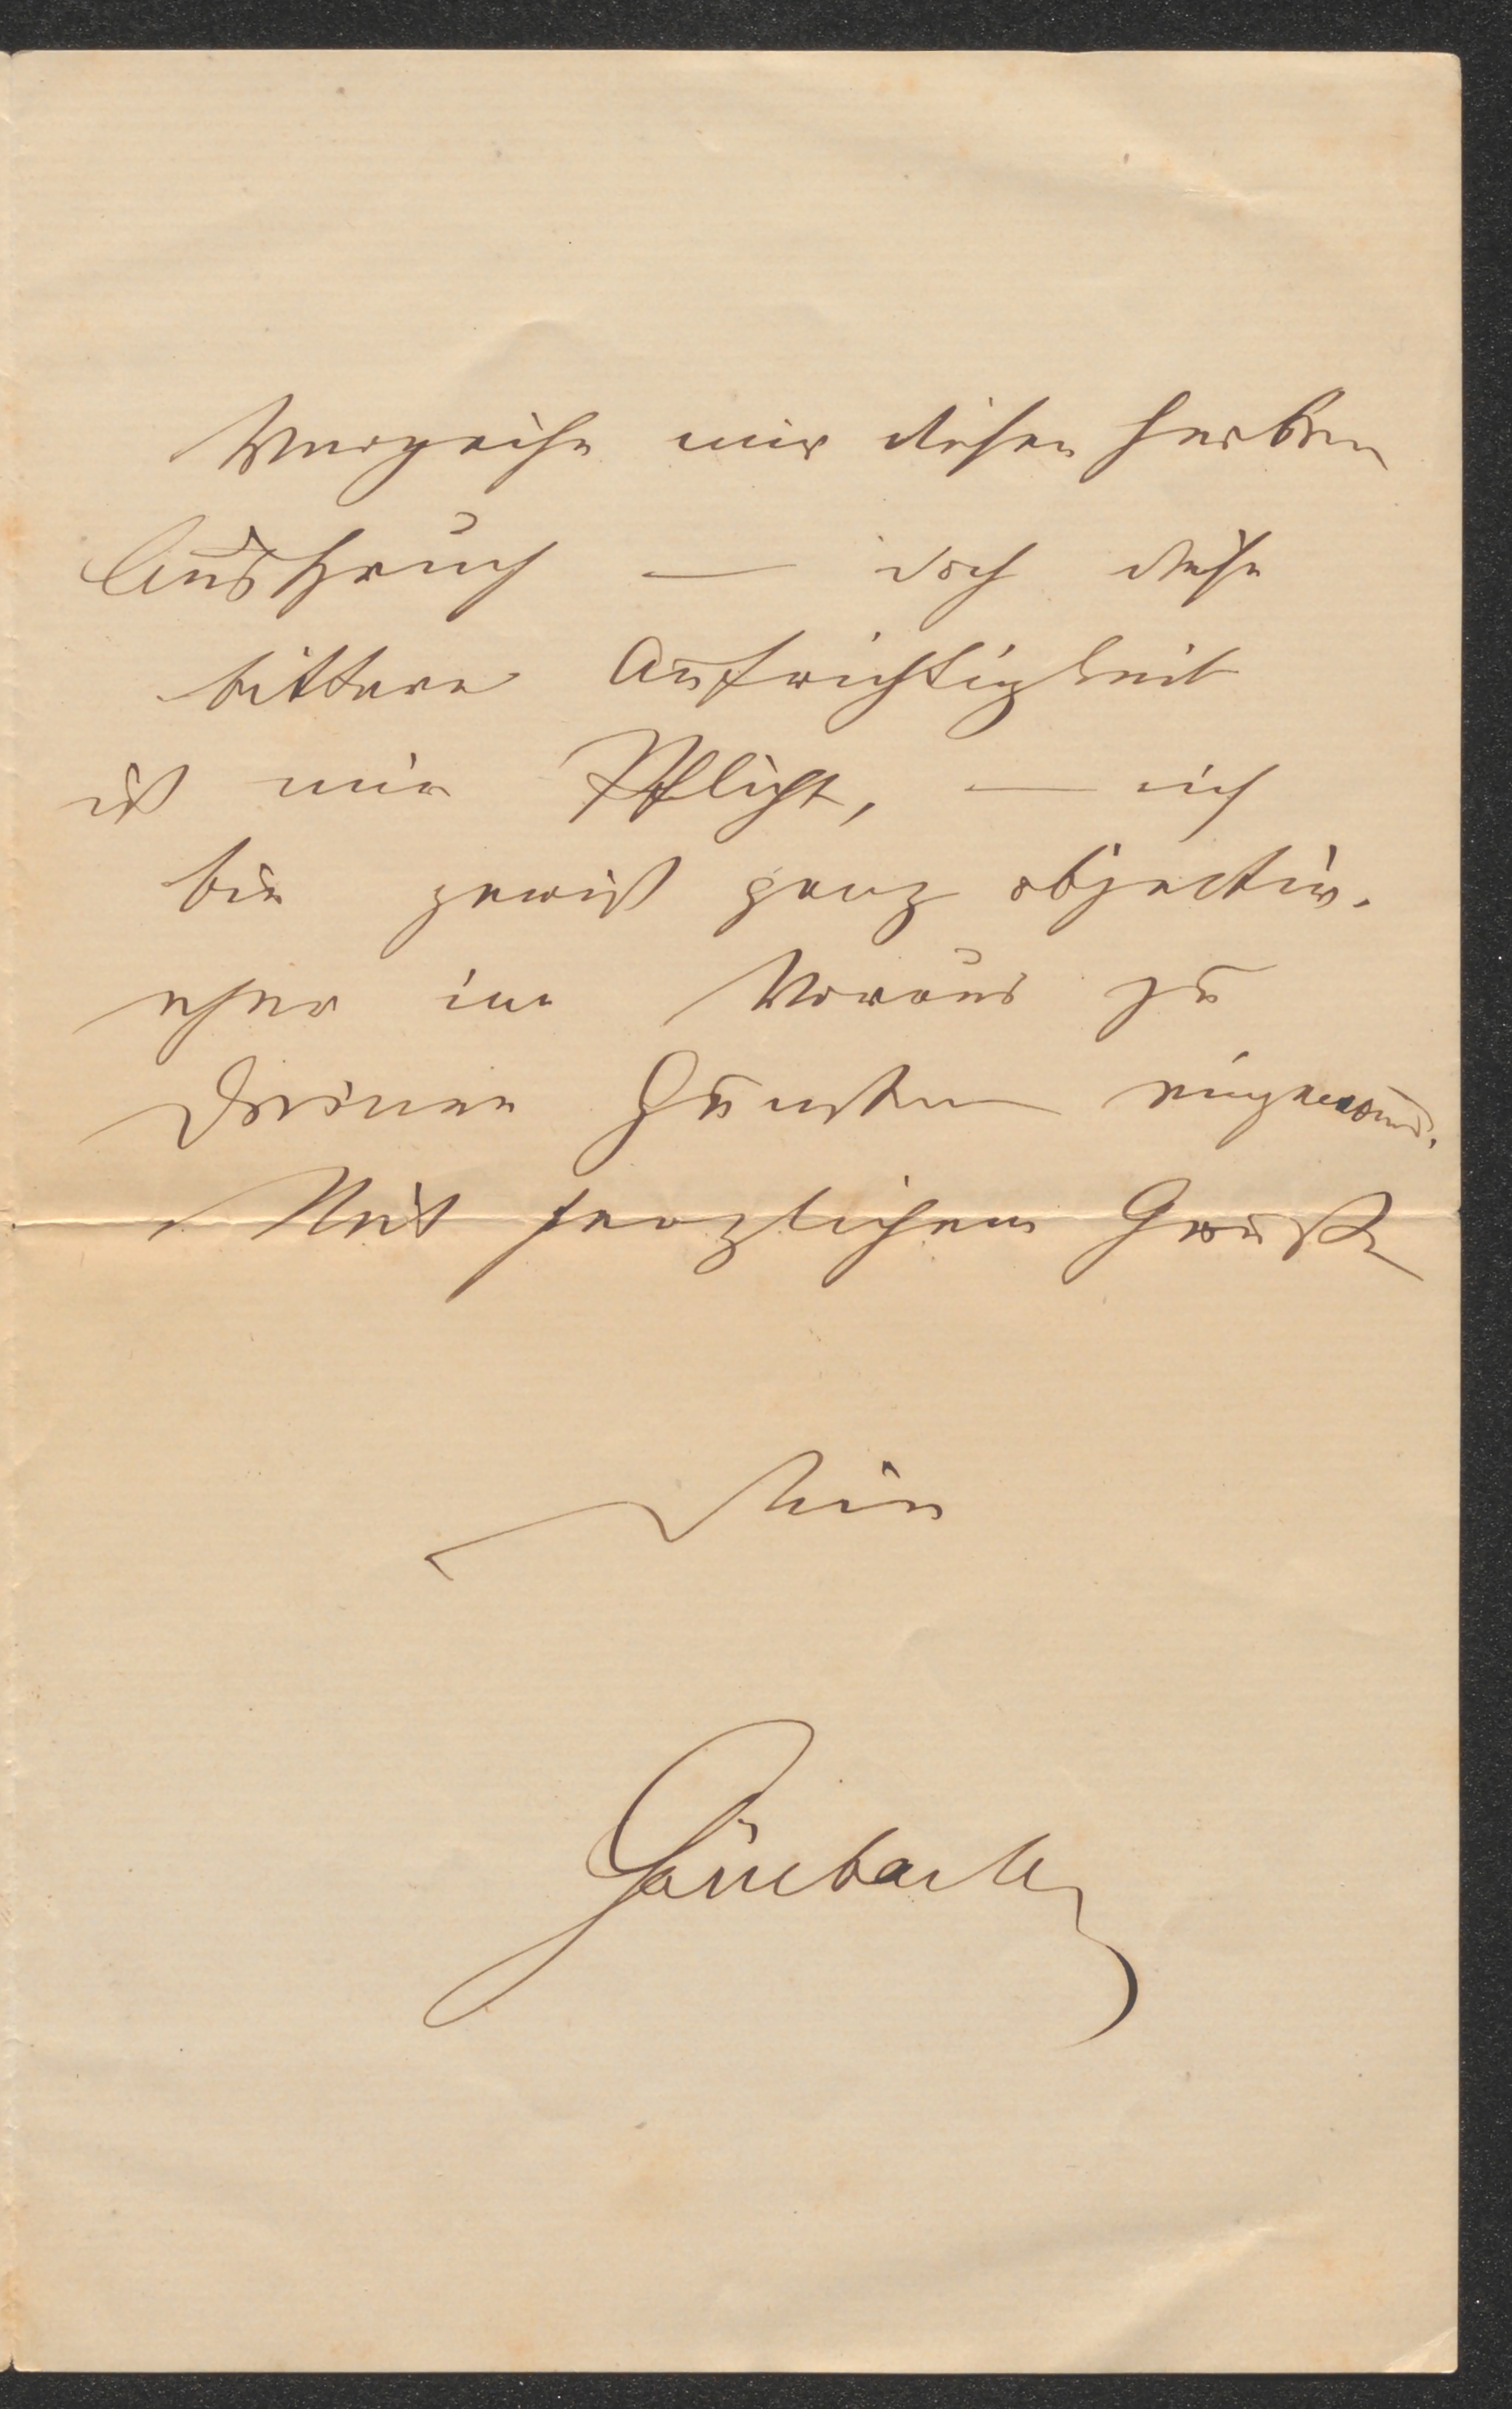 Verzeihe mir diesen herben
Ausspruch — doch diese
bittere Aufrichtigkeit
ist mir Pflicht, — ich
bin gewiß ganz objectiv.
eher im Voraus zu
Deinen Gunsten
Mit herzlichem Gruße
Dein